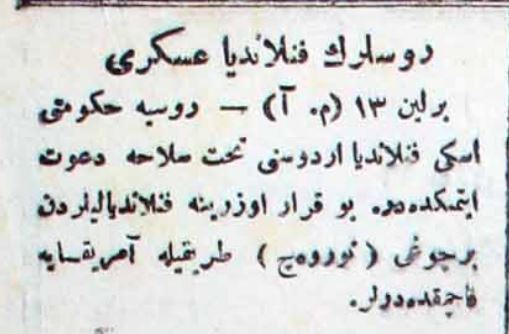 روسلرك فنلاندیا عسكری
برلین ١٣ (م. آ) — روسیه حكومتی
اسكی فنلاندیا اردوسنی تحت سلاحه دعوت
ایتمكده‌در. بو قرار اوزرینه فنلاندیالیلردن
برچوغی ( نوروه‌ج ) طریقیله آمریقایه
قاچمقده‌درلر.